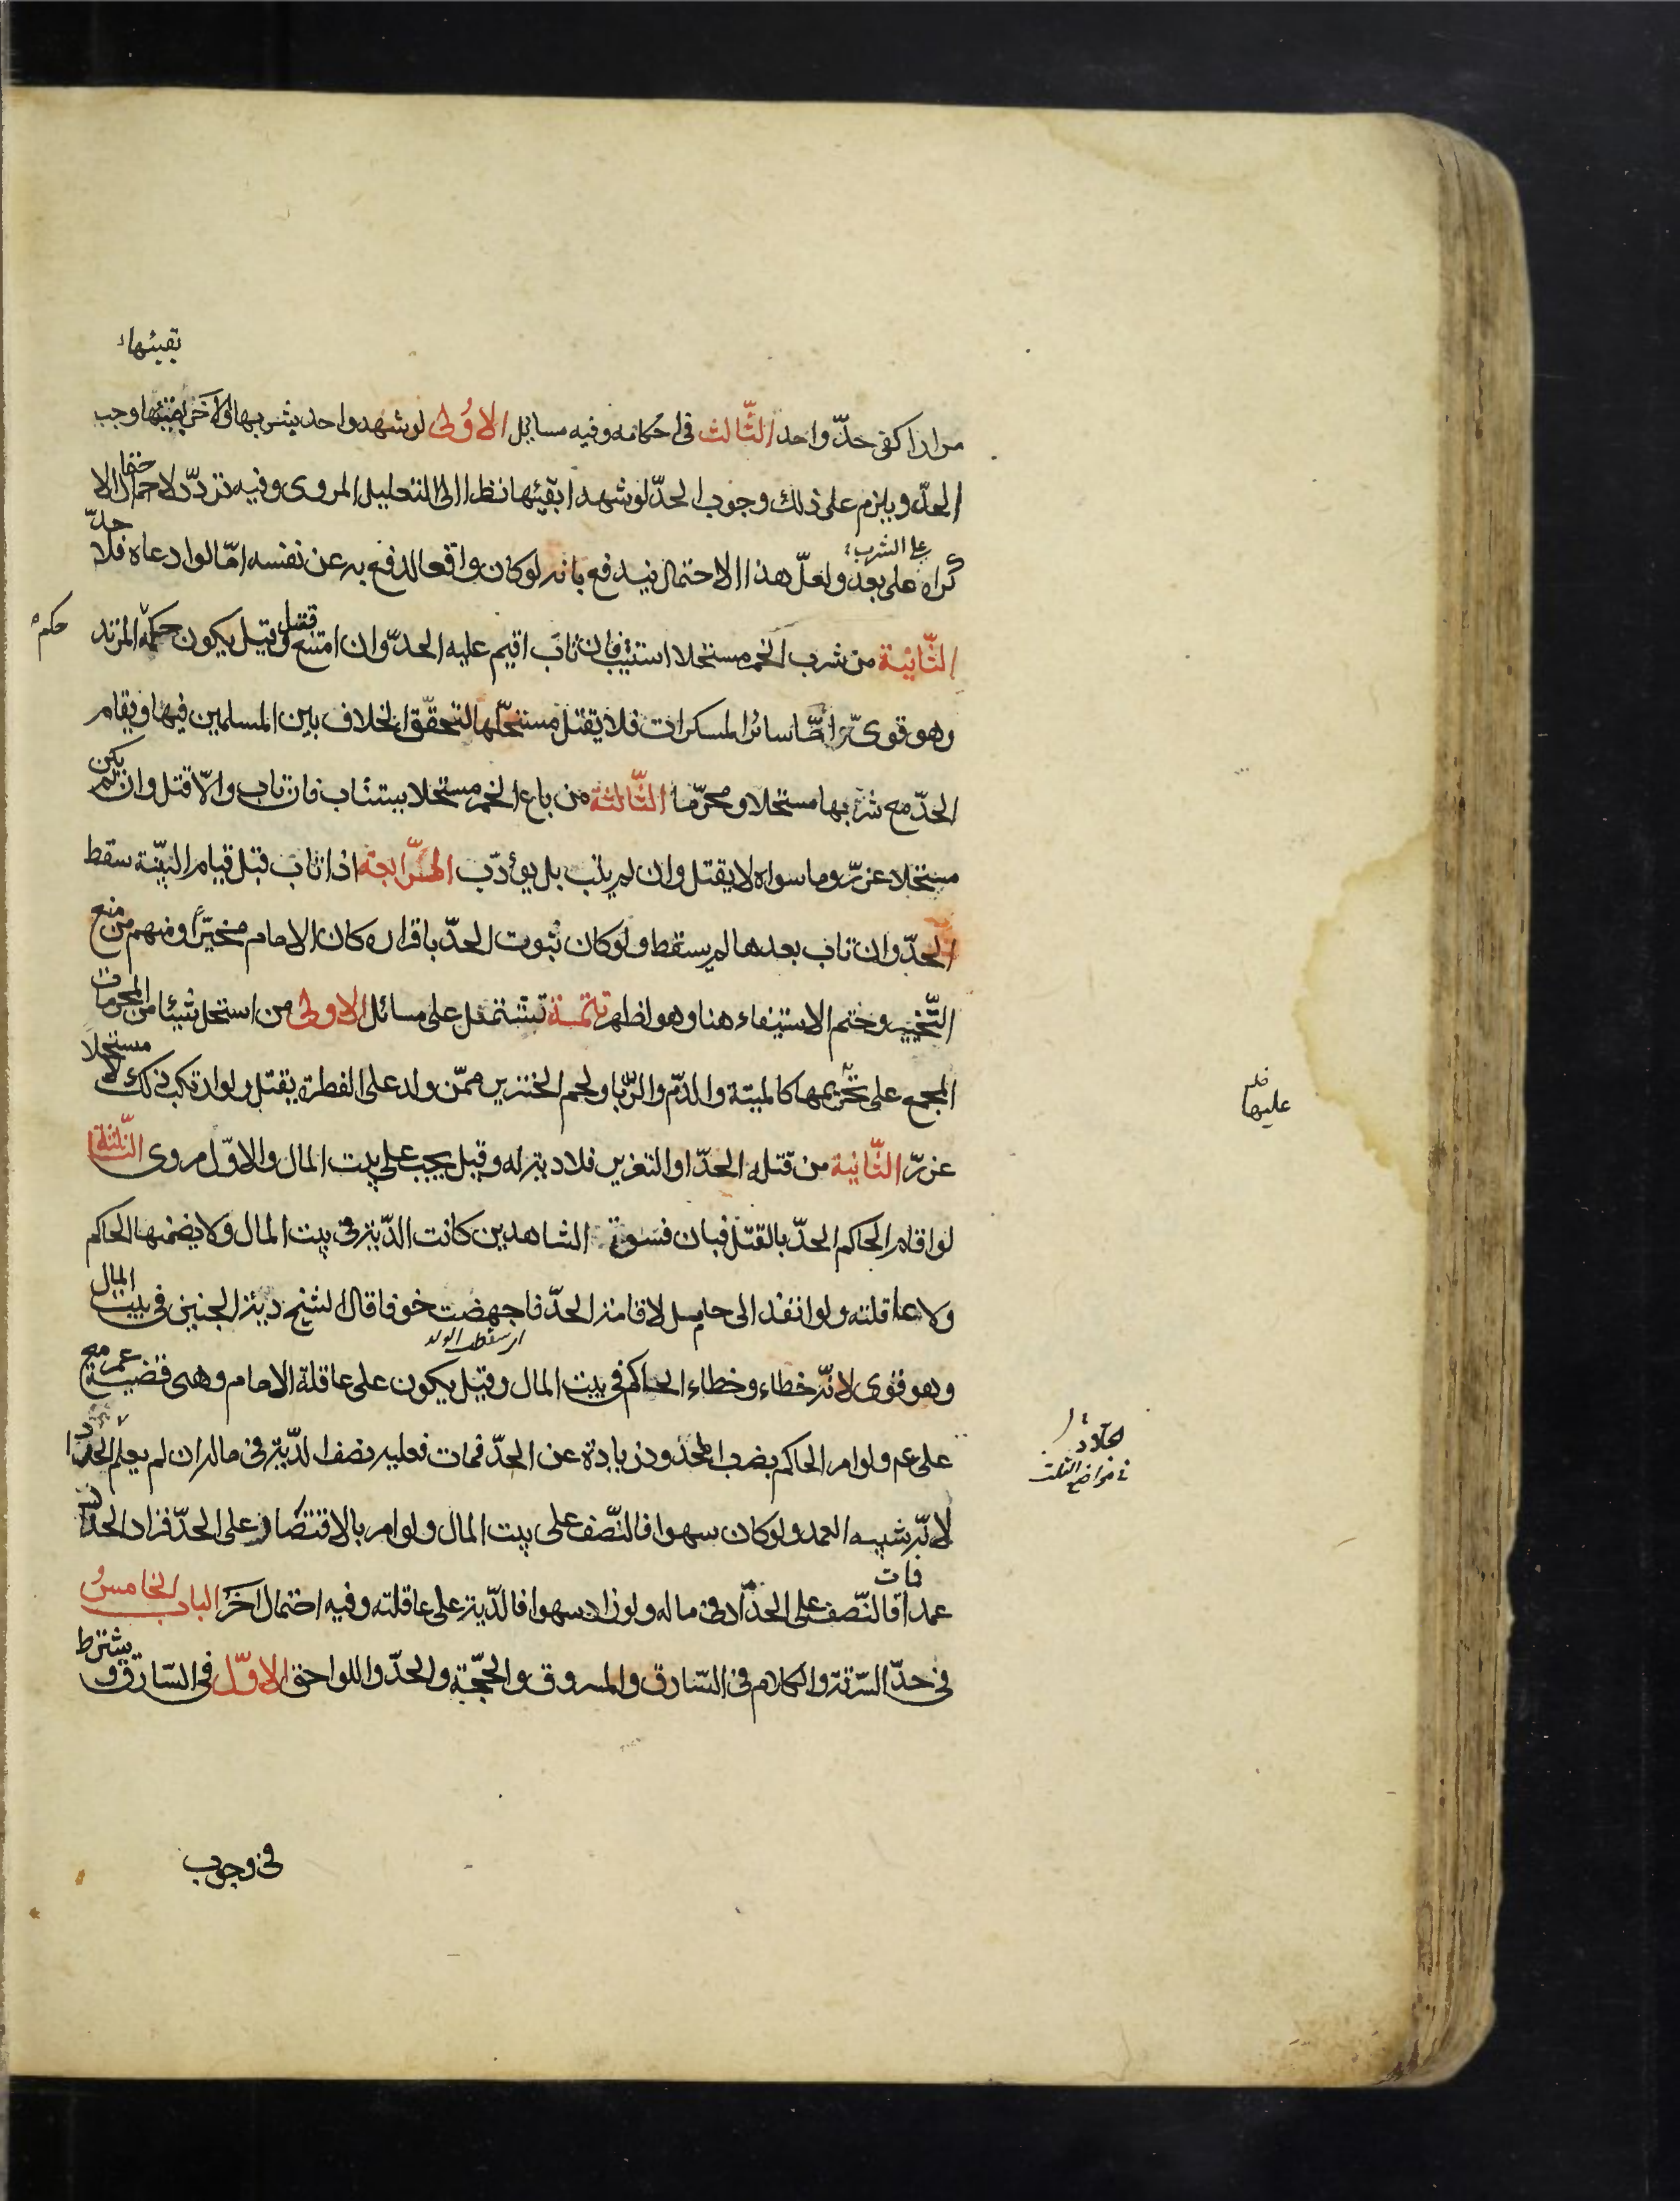 بقيئها
مرارا كفى حدّ واحد الثّالث في احكامه وفيه مسائل الاولى لو شهد واحد بشربها والاخر بقيئها وجب
الحدّ ويلزم على ذلك وجوب الحدّ لو شهدا بقيئها نظرا الى التعليل المروى وفيه تردّد لاحتمال الا
على الشرب
كراه على بعد ولعلّ هذا الاحتمال يندفع بانه لو كان واقعا لدفع به عن نفسه امّا لو ادعاه فلا حدّ
الثّانية من شرب الخمر مستحلا استتيب فان تاب اقيم عليه الحدّ وان امتنع قتل وقيل يكون حكمه المرتد
حكم
وهو قوىّ وامّا سائر المسكرات فلا يقتل مستحلّها لتحقّق الخلاف بين المسلمين فيها ويقام
الحدّ مع شربها مستحلا ومحرّما الثّالثة من باع الخمر مستحلا يستتاب فان تاب والّا قتل وان لم يكن
مستحلا عزّر وما سواه لا يقتل وان لم يتب بل يؤدّب الرّابعة اذا تاب قبل قيام البيّنة سقط
الحدّ وان تاب بعدها لم يسقط ولو كان ثبوت الحدّ باقراره كان الامام مخيّرا ومنهم من منع
التّخيير وحتم الاستيفاء هنا وهو اظهر تتمّة تشتمل على مسائل الاولى من استحل شيئا من المحرمات
المجمع على تحريمها كالميتة والدّم والرّبا ولحم الخنزير ممّن ولد على الفطرة يقتل ولو ارتكب ذلك لا مستحلا
عليها
عزرّ الثّانية من قتله الحدّ او التعزير فلا دية له وقيل يجب على بيت المال والاوّل مروى الثّالثة
لو اقام الحاكم الحدّ بالقتل فبان فسوق الشاهدين كانت الدّية في بيت المال ولا يضمنها الحاكم
ولا عاقلته ولو انفذ الى حامل لاقامة الحدّ فاجهضت خوفا قال الشيخ دية الجنين في بيت المال
اى سقط الولد
وهو قوى لانّه خطاء وخطاء الحاكم في بيت المال وقيل يكون على عاقلة الامام وهى قضية عمر مع
على عم ولو امر الحاكم بضرب المحدود زيادة عن الحدّ فمات فعليه نصف الدّية في ماله ان لم يعلم الحدّاد
في مواضع الثلث
لانّه شبيه العمد ولو كان سهوا فالنّصف على بيت المال ولو امر بالاقتصار على الحدّ فزاد الحدّاد
فمات
عمدا فالنّصف على الحدّاد في ماله ولو زاد سهوا فالدّية على عاقلته وفيه احتمال اخر الباب الخامس
في حدّ السّرقة والكلام في السّارق والمسروق والحجّة والحدّ واللواحق الاوّل في السّارق ويشترط
في وجوب